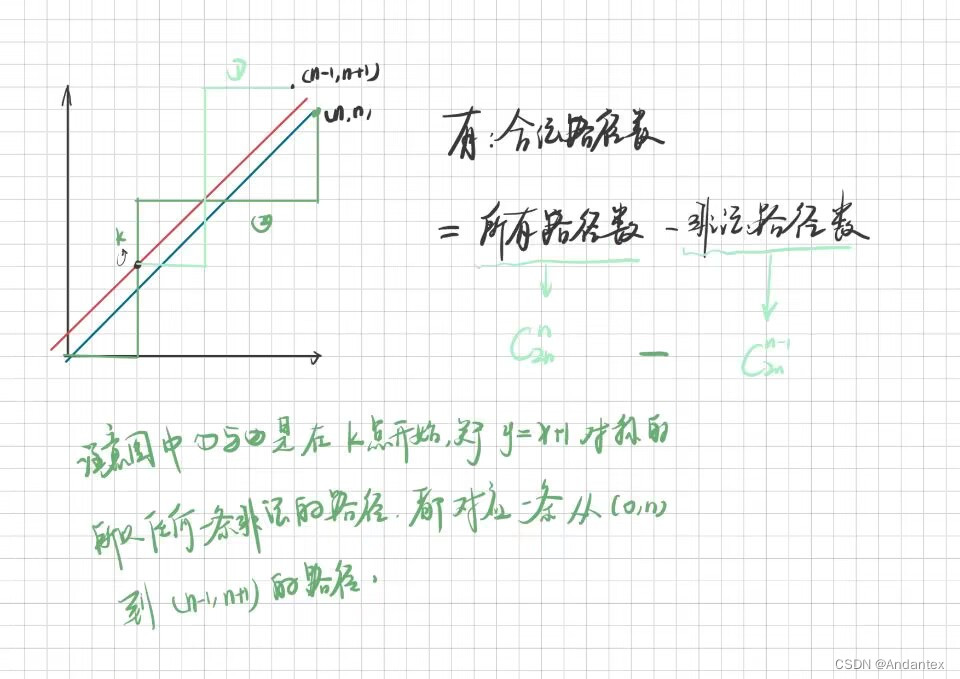 ①
(n-1,n+1)
(n,n)
②
k
有:合法路径数
= 所有路径数 - 非法路径数
C_{2n}^{n} - C_{2n}^{n-1}
注意图中①与②是在k点开始,关于 y=x+1 对称的
所以任何一条非法的路径.都对应一条从(0,n)
到(n-1,n+1)的路径.
CSDN @Andantex